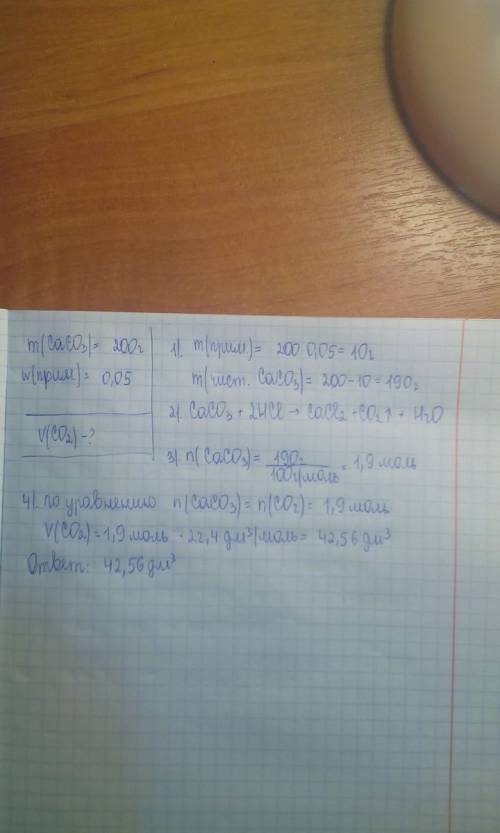 m(CaCO₃) = 200г
w(прим) = 0,05
V(CO₂) - ?
1). m(прим) = 200·0,05 = 10г
m(чист. CaCO₃) = 200-10 = 190г
2) CaCO₃ + 2HCl → CaCl₂ + CO₂↑ + H₂O
3) n(CaCO₃) = 190г / 100г/моль = 1,9 моль
4). по уравнению n(CaCO₃) = n(CO₂) = 1,9 моль
V(CO₂) = 1,9 моль · 22,4 дм³/моль = 42,56 дм³
Ответ: 42,56 дм³